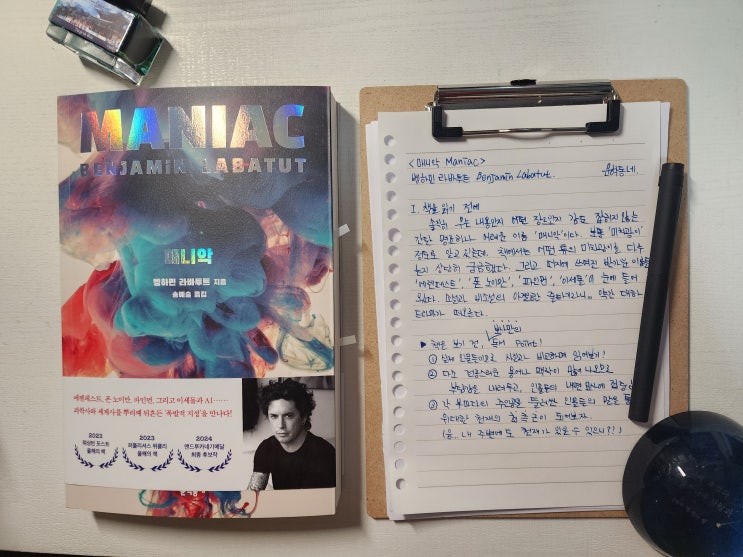 MANIAC
BENJAMIN LABATUT
매니악
벵하민 라바투트 지음
송예슬 옮김
에렌페스트, 폰 노이만, 파인먼, 그리고 이세돌과 AI……
과학사와 세계사를 뿌리째 뒤흔든 '폭발적 지성'을 만나다!
2023
워싱턴 포스트
올해의 책
2023
퍼블리셔스 위클리
올해의 책
2024
앤드루카네기메달
최종 후보작
<매니악 Maniac>
벵하민 라바투트 Benjamin Labatut.
문학동네.
I. 책을 읽기 전에
솔직히 무슨 내용인지 어떤 장르인지 감도 잡히지 않는
간단 명료하나 어려운 이름 '매니악'이다. 보통 '미치광이'
정도로 알고 있는데, 책에서는 어떤 류의 미치광이를 다루
는지 상당히 궁금했다. 그리고 띠지에 쓰여진 반가운 이름들
'에렌페스트', '폰 노이만', '파인먼', '이세돌'이 눈에 들어
왔다. 소설과 비소설의
드라마가 떠오른다.
나만의
▶ 책을 보기 전, 독서 Point!
① 실제 인물들이므로 사실과 비교하며 읽어보기!
② 다소 전문스러운 용어나 맥락이 많이 나오므로
부담감은 내려두고, 인물들의 내면 묘사에
③ 각 부마다의 주인공을 둘러싼 인물들의 말을
위대한 천재의 최측근이 되어보자.
(음.. 내 주변에도 천재가 있을 수 있으니??)